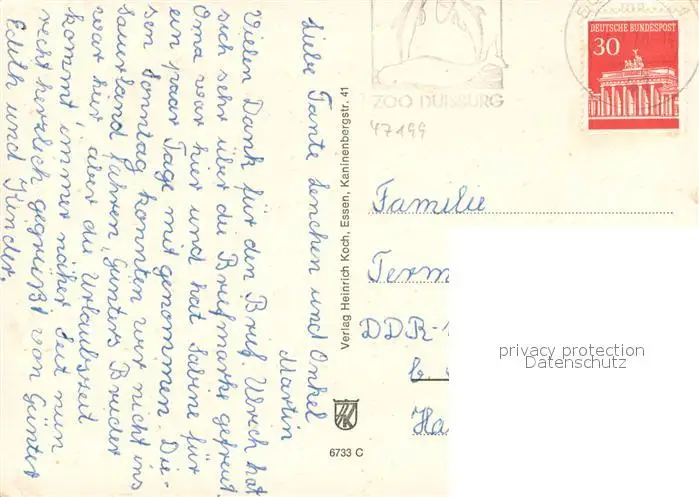 Liebe Tante Lenchen und Onkel
Martin
Vielen Dank für den Brief. Ulrich hat
sich sehr über die Briefmarke gefreut.
Oma war hier und hat Sabine für
ein paar Tage mit genommen. Die-
sen Sonntag konnten wir nicht ins
Sauerland fahren, Günters Bruder
war hier aber die Urlaubszeit
kommt immer näher. Seit nun
recht herzlich gegrüßt von Günter
Edith und Kinder.
Verlag Heinrich Koch, Essen, Kaninenbergstr. 41
HK
6733 C
ZOO DUISBURG
47199
DEUTSCHE BUNDESPOST
30
Familie
Term
DDR-1
b.
Ha
privacy protection
Datenschutz